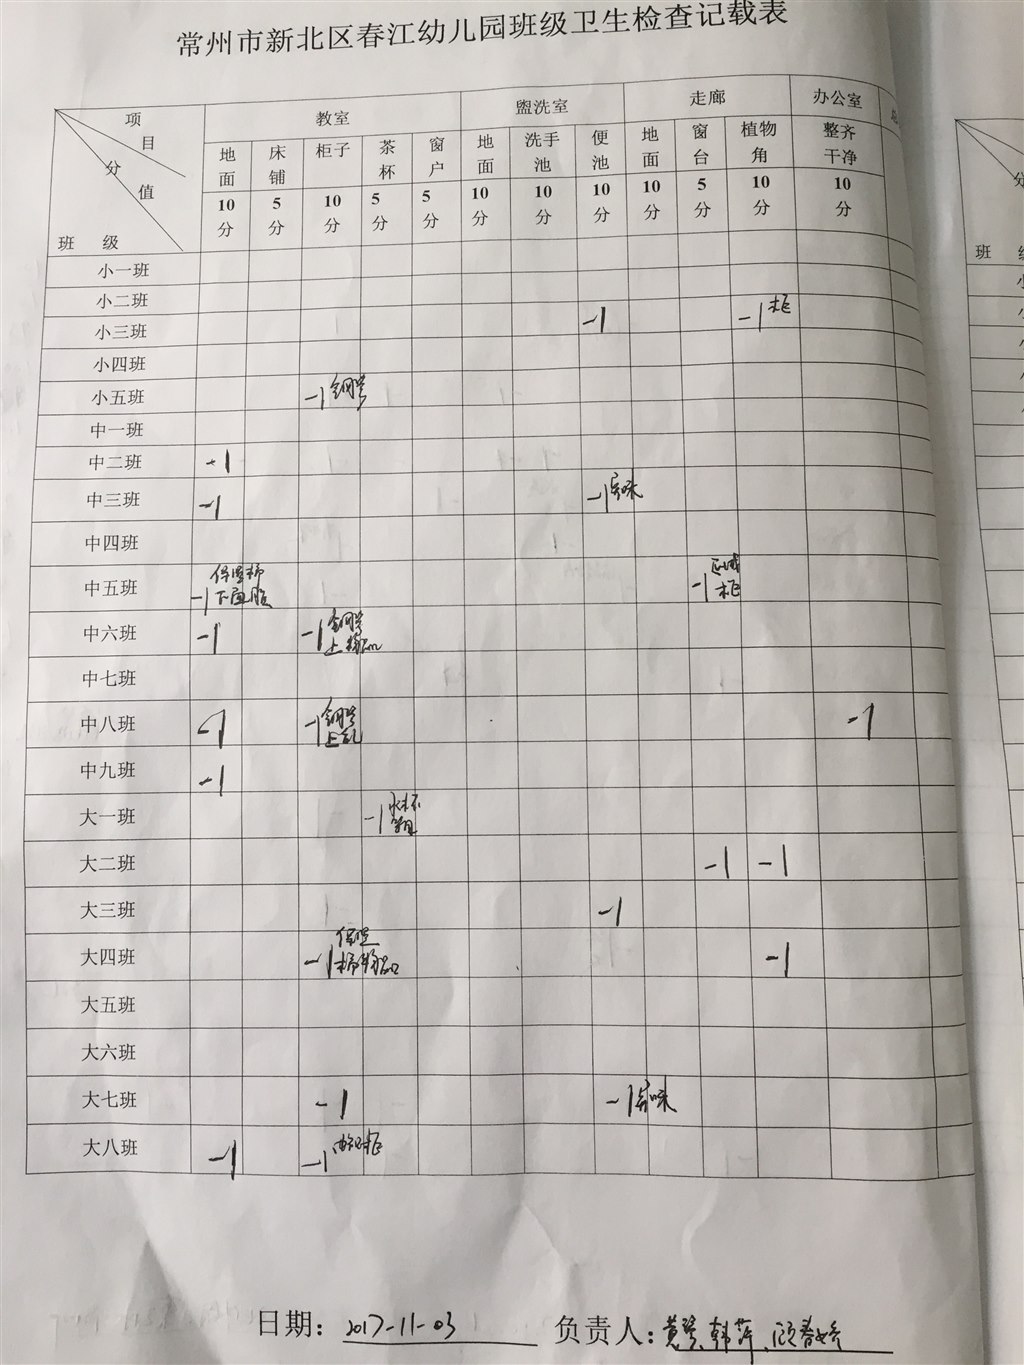 常州市新北区春江幼儿园班级卫生检查记载表
项目 分值 班级 教室 盥洗室 走廊 办公室
地面 床铺 柜子 茶杯 窗户 地面 洗手池 便池 地面 窗台 植物角 整齐干净
10分 5分 10分 5分 5分 10分 10分 10分 10分 5分 10分 10分
小一班
小二班
小三班 -1 -1柜
小四班
小五班 -1钢琴
中一班
中二班 -1
中三班 -1 -1异味
中四班
中五班 -1 下面脏 -1区域柜
中六班 -1 -1钢琴上
中七班
中八班 -1 -1钢琴上乱 -1
中九班
-1
大一班 -1
大二班 -1 -1
大三班 -1
大四班 -1 -1
大五班
大六班
大七班 -1 -1异味
大八班 -1 -1
日期：2017-11-03 负责人：
班 级